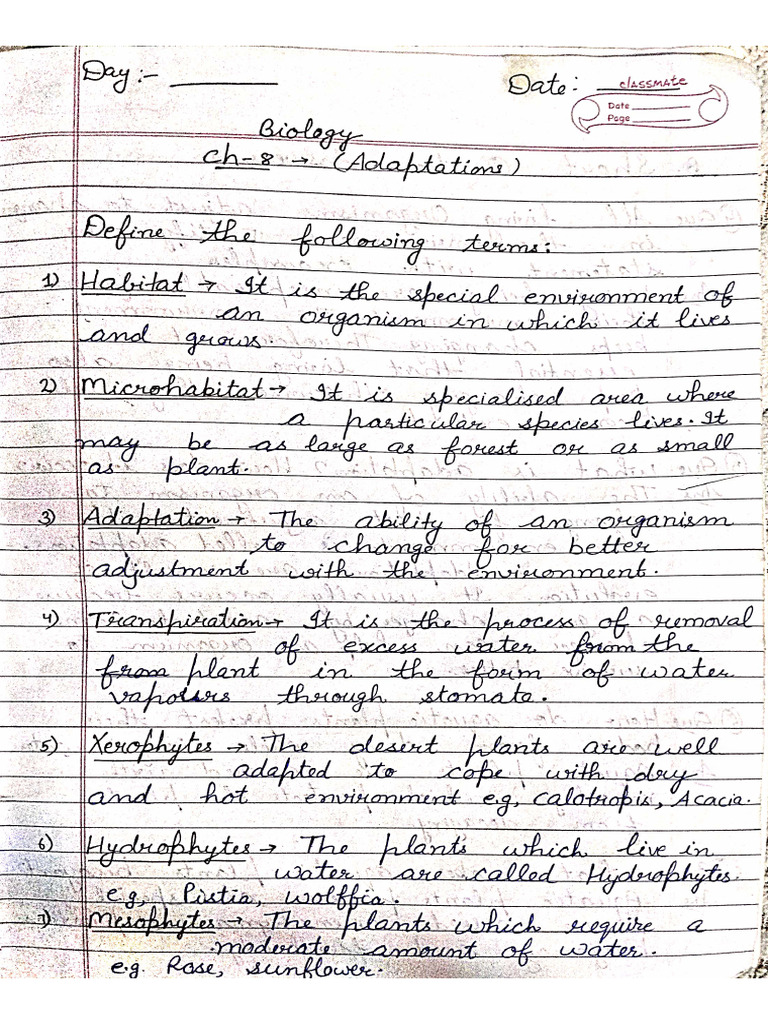 Day :- ________
Date: ________
classmate
Date ________
Page ________
Biology
Ch-8 → (Adaptations)
Define the following terms:
1) Habitat → It is the special environment of
an organism in which it lives
and grows
2) Microhabitat → It is specialised area where
a particular species lives. It
may be as large as forest or as small
as plant.
3) Adaptation → The ability of an organism
to change for better
adjustment with the environment.
4) Transpiration → It is the process of removal
of excess water from the
from plant in the form of water
vapours through stomate.
5) Xerophytes → The desert plants are well
adapted to cope with dry
and hot environment e.g, Calotropis, Acacia.
6) Hydrophytes → The plants which live in
water are called Hydrophytes.
e.g, Pistia, wolffia.
7) Mesophytes → The plants which require a
moderate amount of water.
e.g. Rose, sunflower.